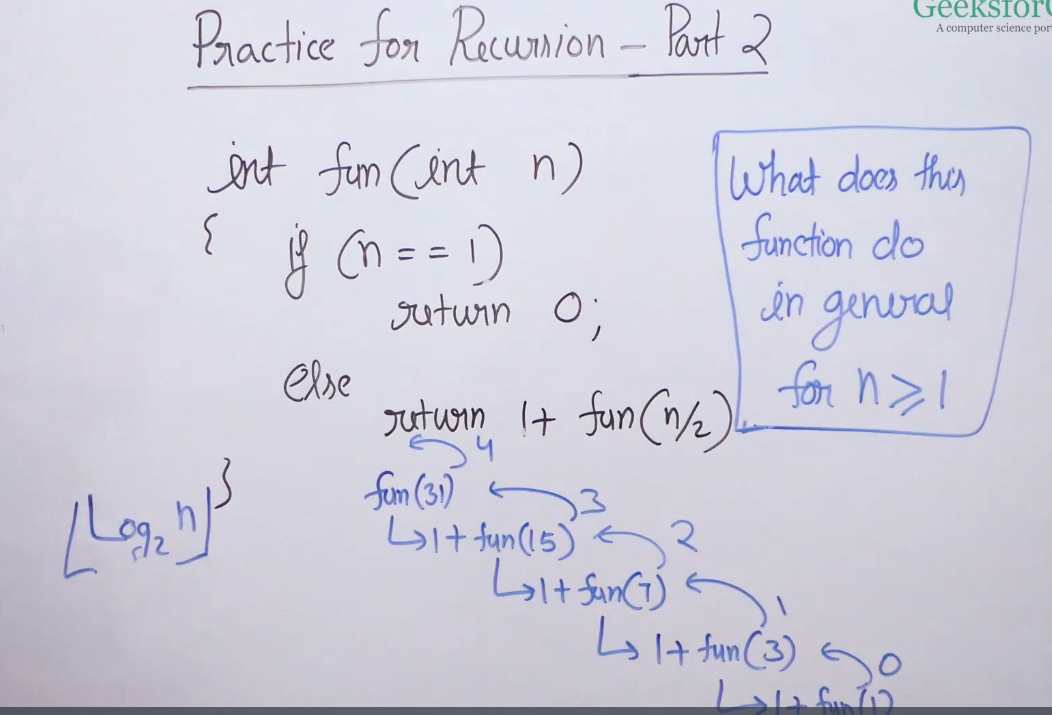 GeeksforG
A computer science por
Practice for Recursion - Part 2
int fun(int n)
{ if (n == 1)
return 0;
else
return 1+ fun(n/2)
}
What does this
function do
in general
for n ⩾ 1
⌊Log₂ n⌋
4
fun(31)
3
↳1+ fun(15)
2
↳1+ fun(7)
1
↳ 1+ fun(3)
0
↳1+ fun(1)